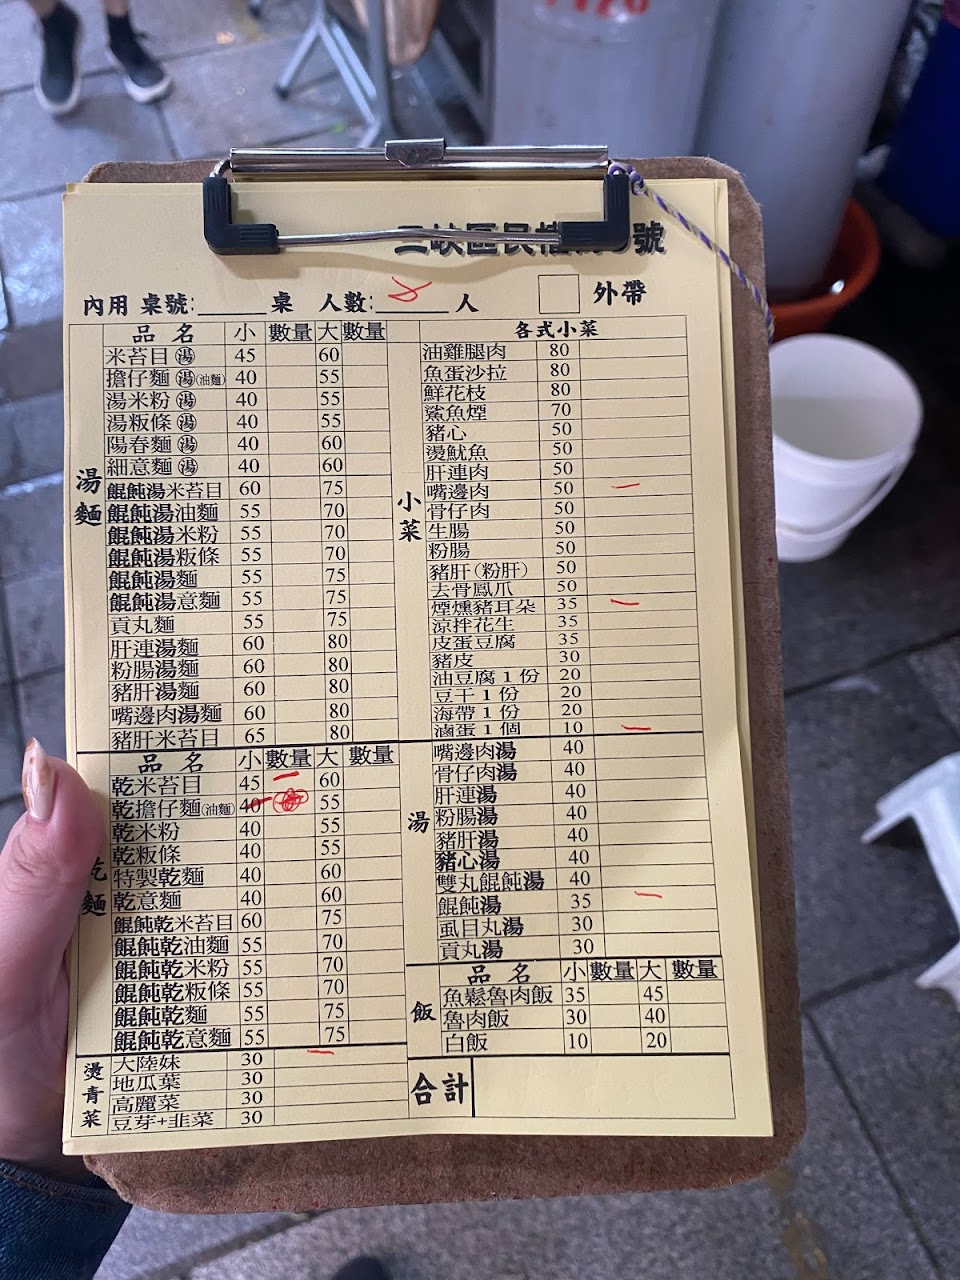 三峽區民權 號
內用 桌號:______桌 人數:______人 外帶
湯麵
品名 小 數量 大 數量
米苔目 湯 45 60
擔仔麵 湯(油麵) 40 55
湯米粉 湯 40 55
湯粄條 湯 40 55
陽春麵 湯 40 60
細意麵 湯 40 60
餛飩湯米苔目 60 75
餛飩湯油麵 55 70
餛飩湯米粉 55 70
餛飩湯粄條 55 70
餛飩湯麵 55 75
餛飩湯意麵 55 75
貢丸麵 55 75
肝連湯麵 60 80
粉腸湯麵 60 80
豬肝湯麵 60 80
嘴邊肉湯麵 60 80
豬肝米苔目 65 80
乾麵
品名 小 數量 大 數量
乾米苔目 45 60
乾擔仔麵(油麵) 40 55
乾米粉 40 55
乾粄條 40 55
特製乾麵 40 60
乾意麵 40 60
餛飩乾米苔目 60 75
餛飩乾油麵 55 70
餛飩乾米粉 55 70
餛飩乾粄條 55 70
餛飩乾麵 55 75
餛飩乾意麵 55 75
燙青菜
大陸妹 30
地瓜葉 30
高麗菜 30
豆芽+韭菜 30
小菜
各式小菜
油雞腿肉 80
魚蛋沙拉 80
鮮花枝 80
鯊魚煙 70
豬心 50
燙魷魚 50
肝連肉 50
嘴邊肉 50
骨仔肉 50
生腸 50
粉腸 50
豬肝(粉肝) 50
去骨鳳爪 50
煙燻豬耳朵 35
涼拌花生 35
皮蛋豆腐 35
豬皮 30
油豆腐1份 20
豆干1份 20
海帶1份 20
滷蛋1個 10
湯
嘴邊肉湯 40
骨仔肉湯 40
肝連湯 40
粉腸湯 40
豬肝湯 40
豬心湯 40
雙丸餛飩湯 40
餛飩湯 35
虱目丸湯 30
貢丸湯 30
飯
品名 小 數量 大 數量
魚鬆魯肉飯 35 45
魯肉飯 30 40
白飯 10 20
合計